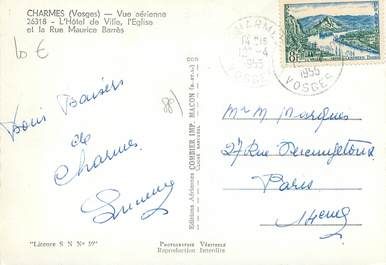 CHARMES (Vosges) — Vue aérienne
26318 - L'Hôtel de Ville, l'Eglise
et la Rue Maurice Barrès
10 €
88)
Bons Baisers
de
Charmes
"Licence S N N° 59"
Editions Aériennes COMBIER IMP. MACON (S.-et-L.)
PHOTOGRAPHIE VÉRITABLE
Reproduction Interdite
CHARMES
1955
VOSGES
8F
1955
VOSGES
Mr M Marques
27 Rue
Paris
14eme